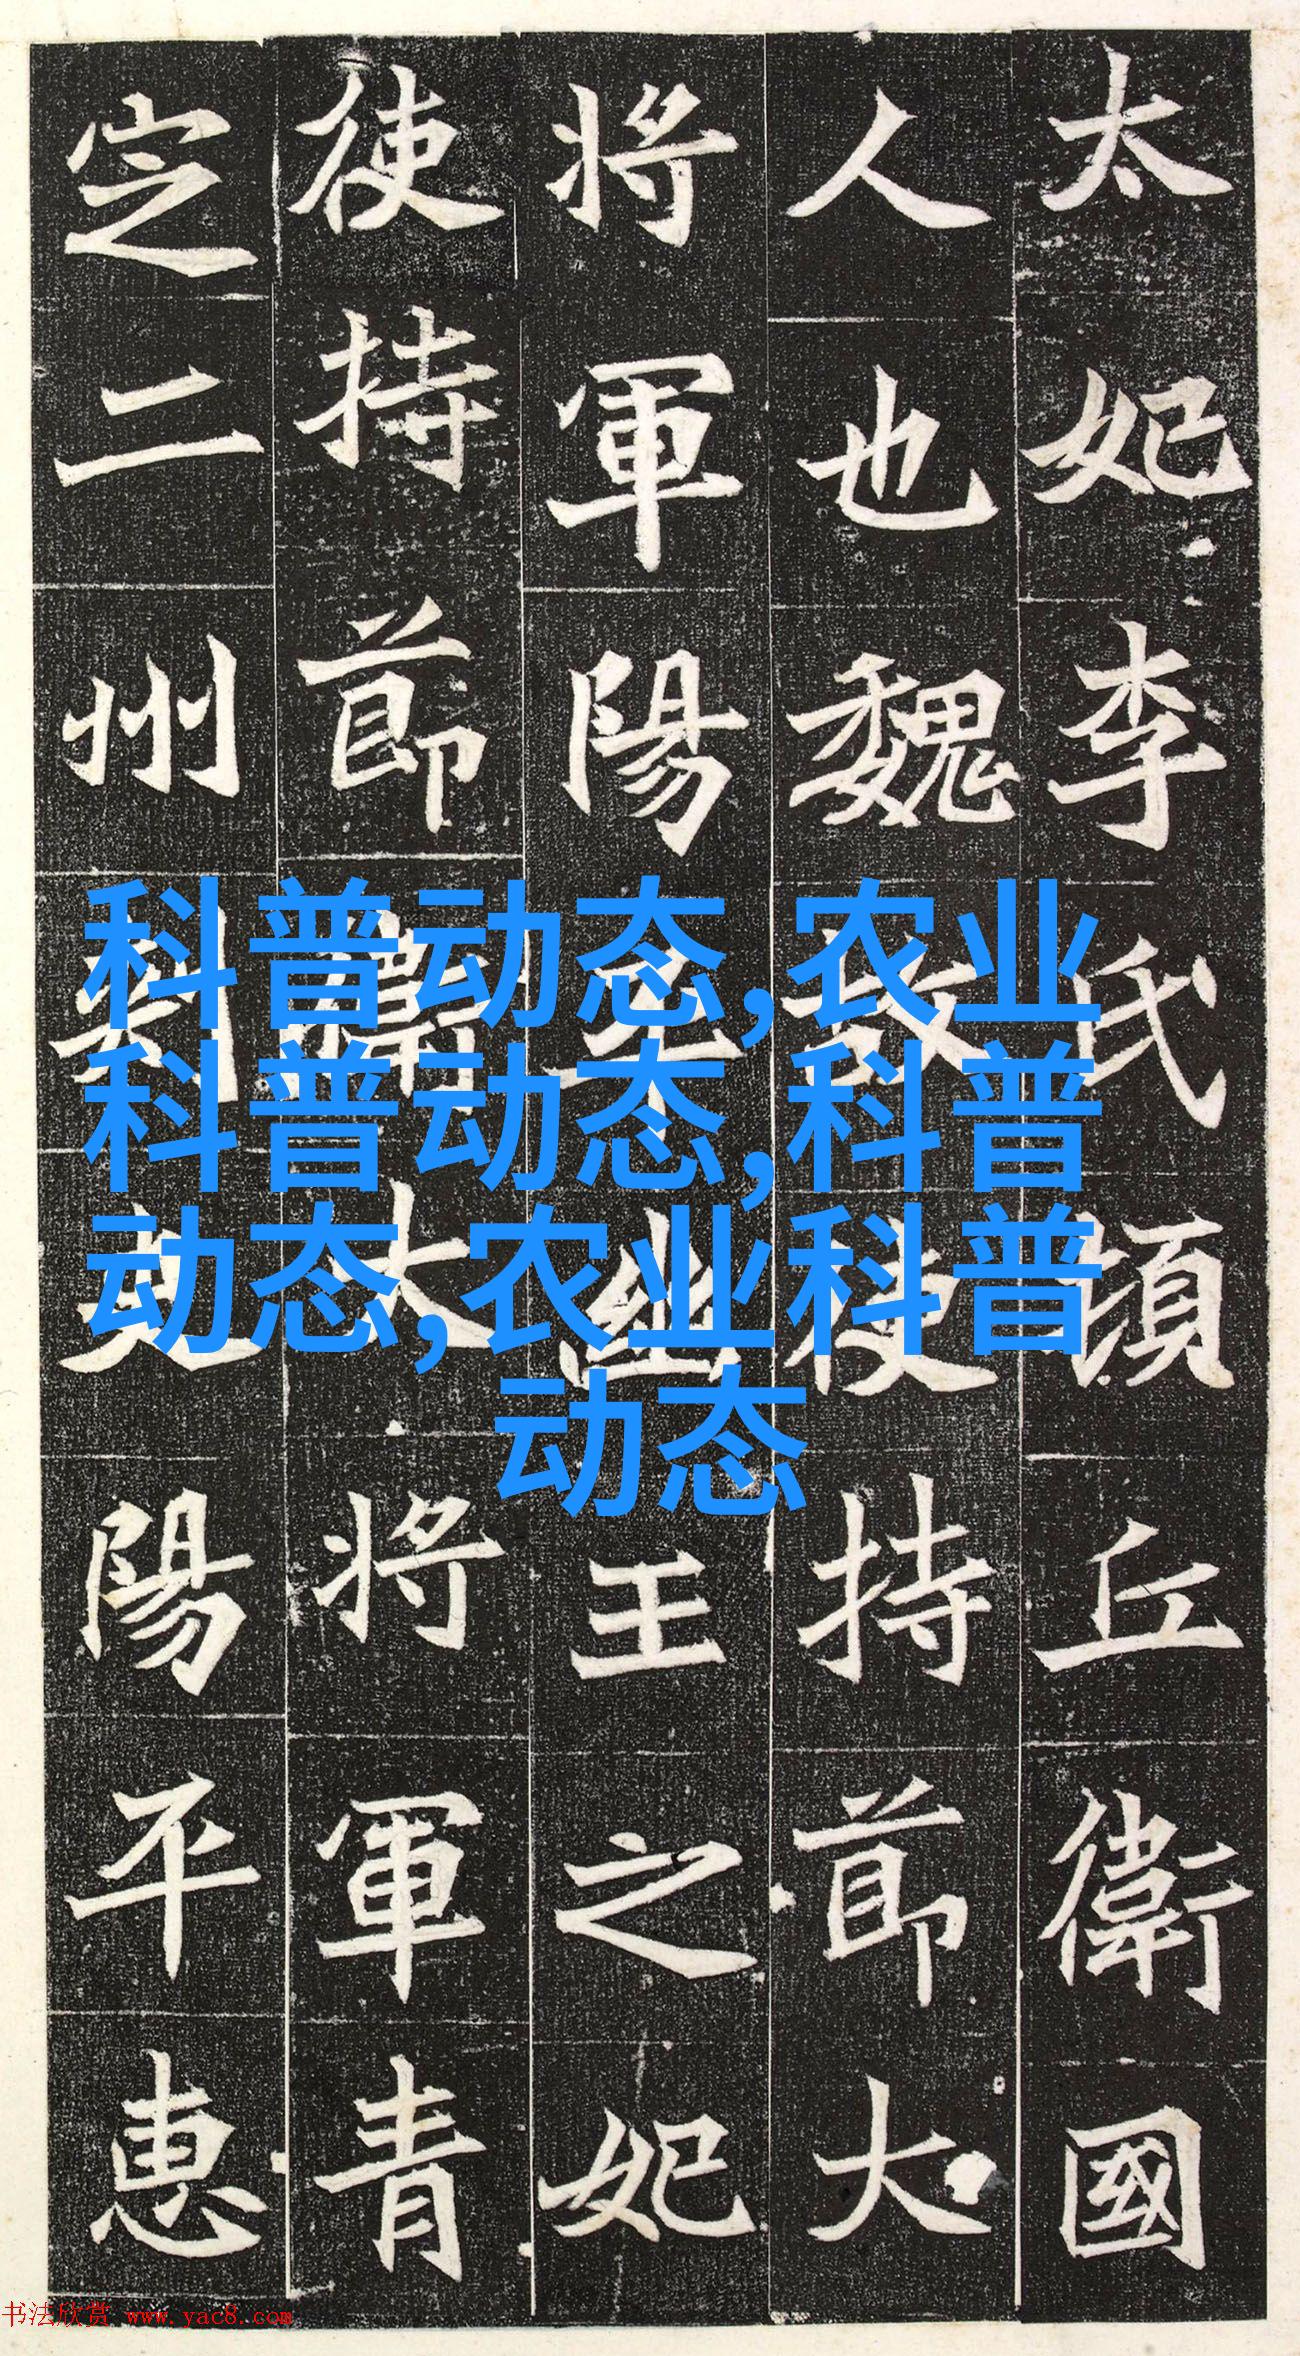 太妃李氏頓丘衛國
人也魏故使持節大
將軍陽平幽王之妃
使持節衛大將軍青
定二州刺史陽平惠
科普动态,农业
科普动态,科普
动态,农业科普
动态
书法欣赏 www.yac8.com